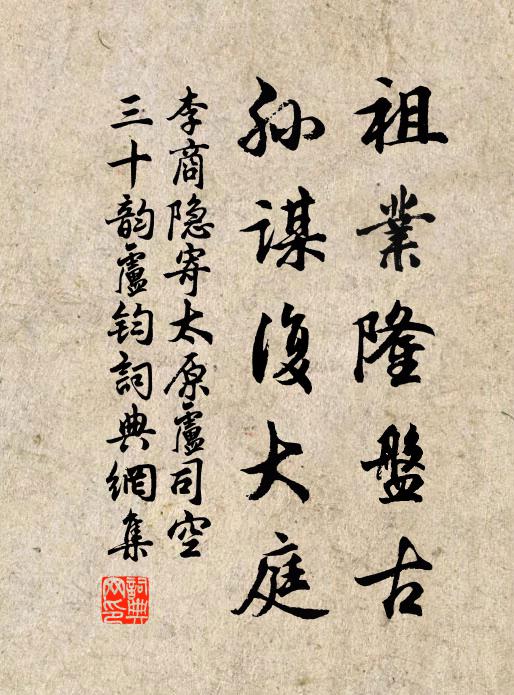 祖業隆盤古
孫謀復大庭
李商隐寄太原盧司空
三十韵盧钧詞典網集
詞典网印